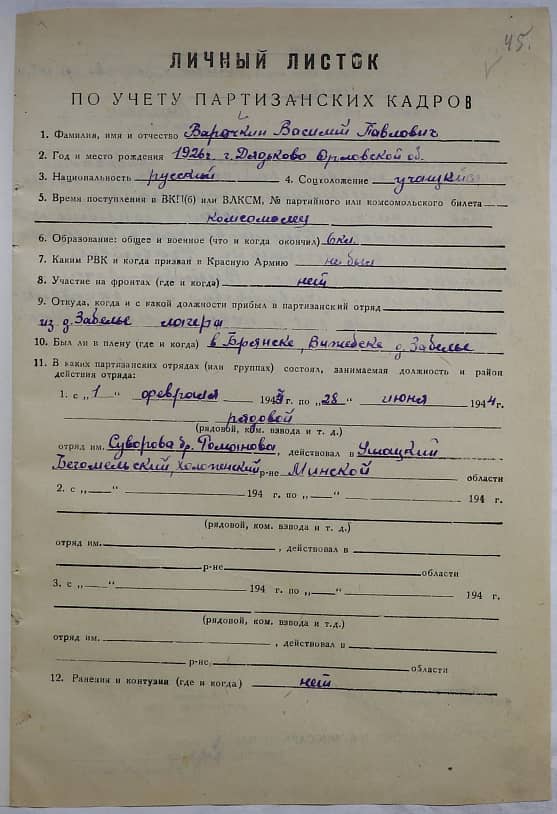 45.
ЛИЧНЫЙ ЛИСТОК
ПО УЧЕТУ ПАРТИЗАНСКИХ КАДРОВ
1. Фамилия, имя и отчество Варочкин Василий Павлович
2. Год и место рождения 1926 г. г. Дядьково Орловской об.
3. Национальность русский 4. Соцположение учащийся
5. Время поступления в ВКП(б) или ВЛКСМ, № партийного или комсомольского билета
комсомолец
6. Образование: общее и военное (что и когда окончил) 6 кл.
7. Каким РВК и когда призван в Красную Армию не был
8. Участие на фронтах (где и когда) нет
9. Откуда, когда и с какой должности прибыл в партизанский отряд
из д. Забелье лагеря
10. Был ли в плену (где и когда) в Брянске, Витебске д. Забелье
11. В каких партизанских отрядах (или группах) состоял, занимаемая должность и район
действия отряда:
1. с „ 1 " февраля 1943 г. по „ 28 " июня 1944 г.
рядовой
(рядовой, ком. взвода и т. д.)
отряд им. Суворова бр. Романова, действовал в Ушацкий
Бегомльский, Холопеничский р-не Минской области
2. с „ " 194 г. по „ " 194 г.
(рядовой, ком. взвода и т. д.)
отряд им. , действовал в
р-не области
3. с „ " 194 г. по „ " 194 г.
(рядовой, ком. взвода и т.д.)
отряд им. , действовал в
р-не области
12. Ранения и контузии (где и когда) нет